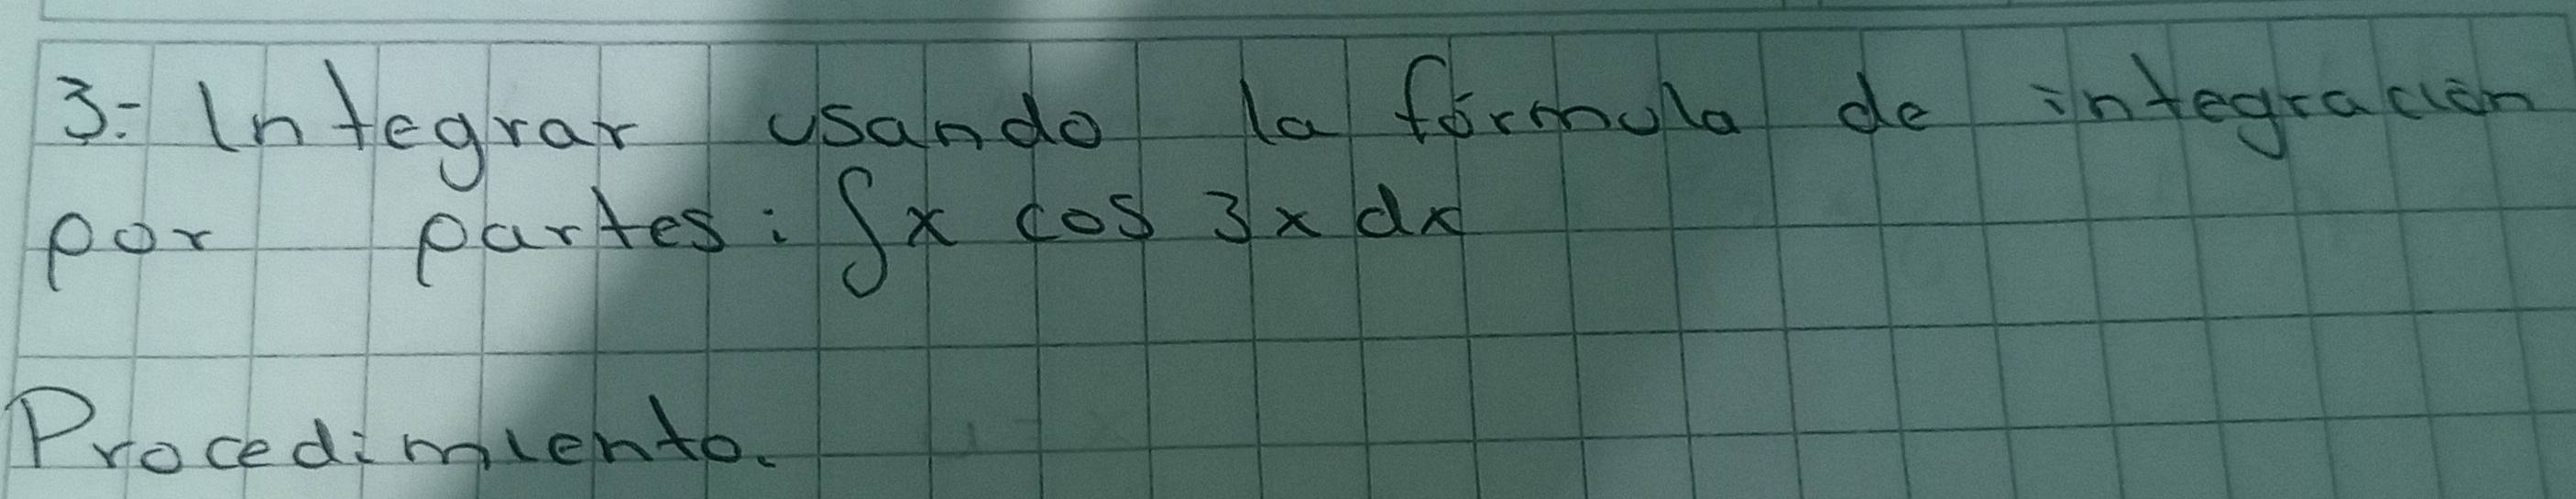 3.- Integrar usando la fórmula de integración
por partes: ∫x cos 3x dx
Procedimiento.